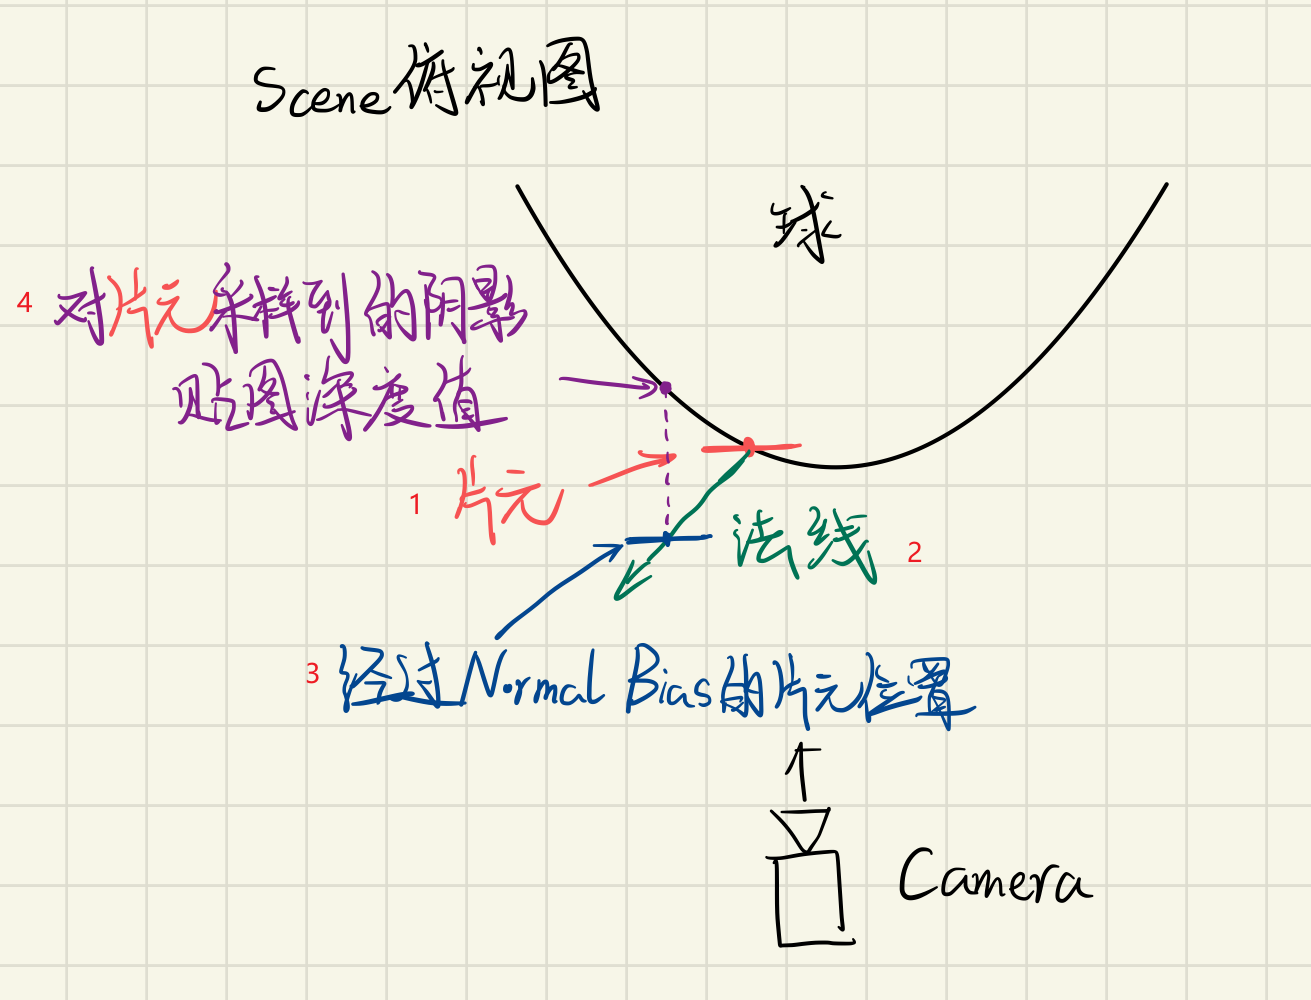 Scene俯视图
球
4 对片元采样到的阴影
贴图深度值
1 片元
法线 2
3 经过Normal Bias的片元位置
Camera